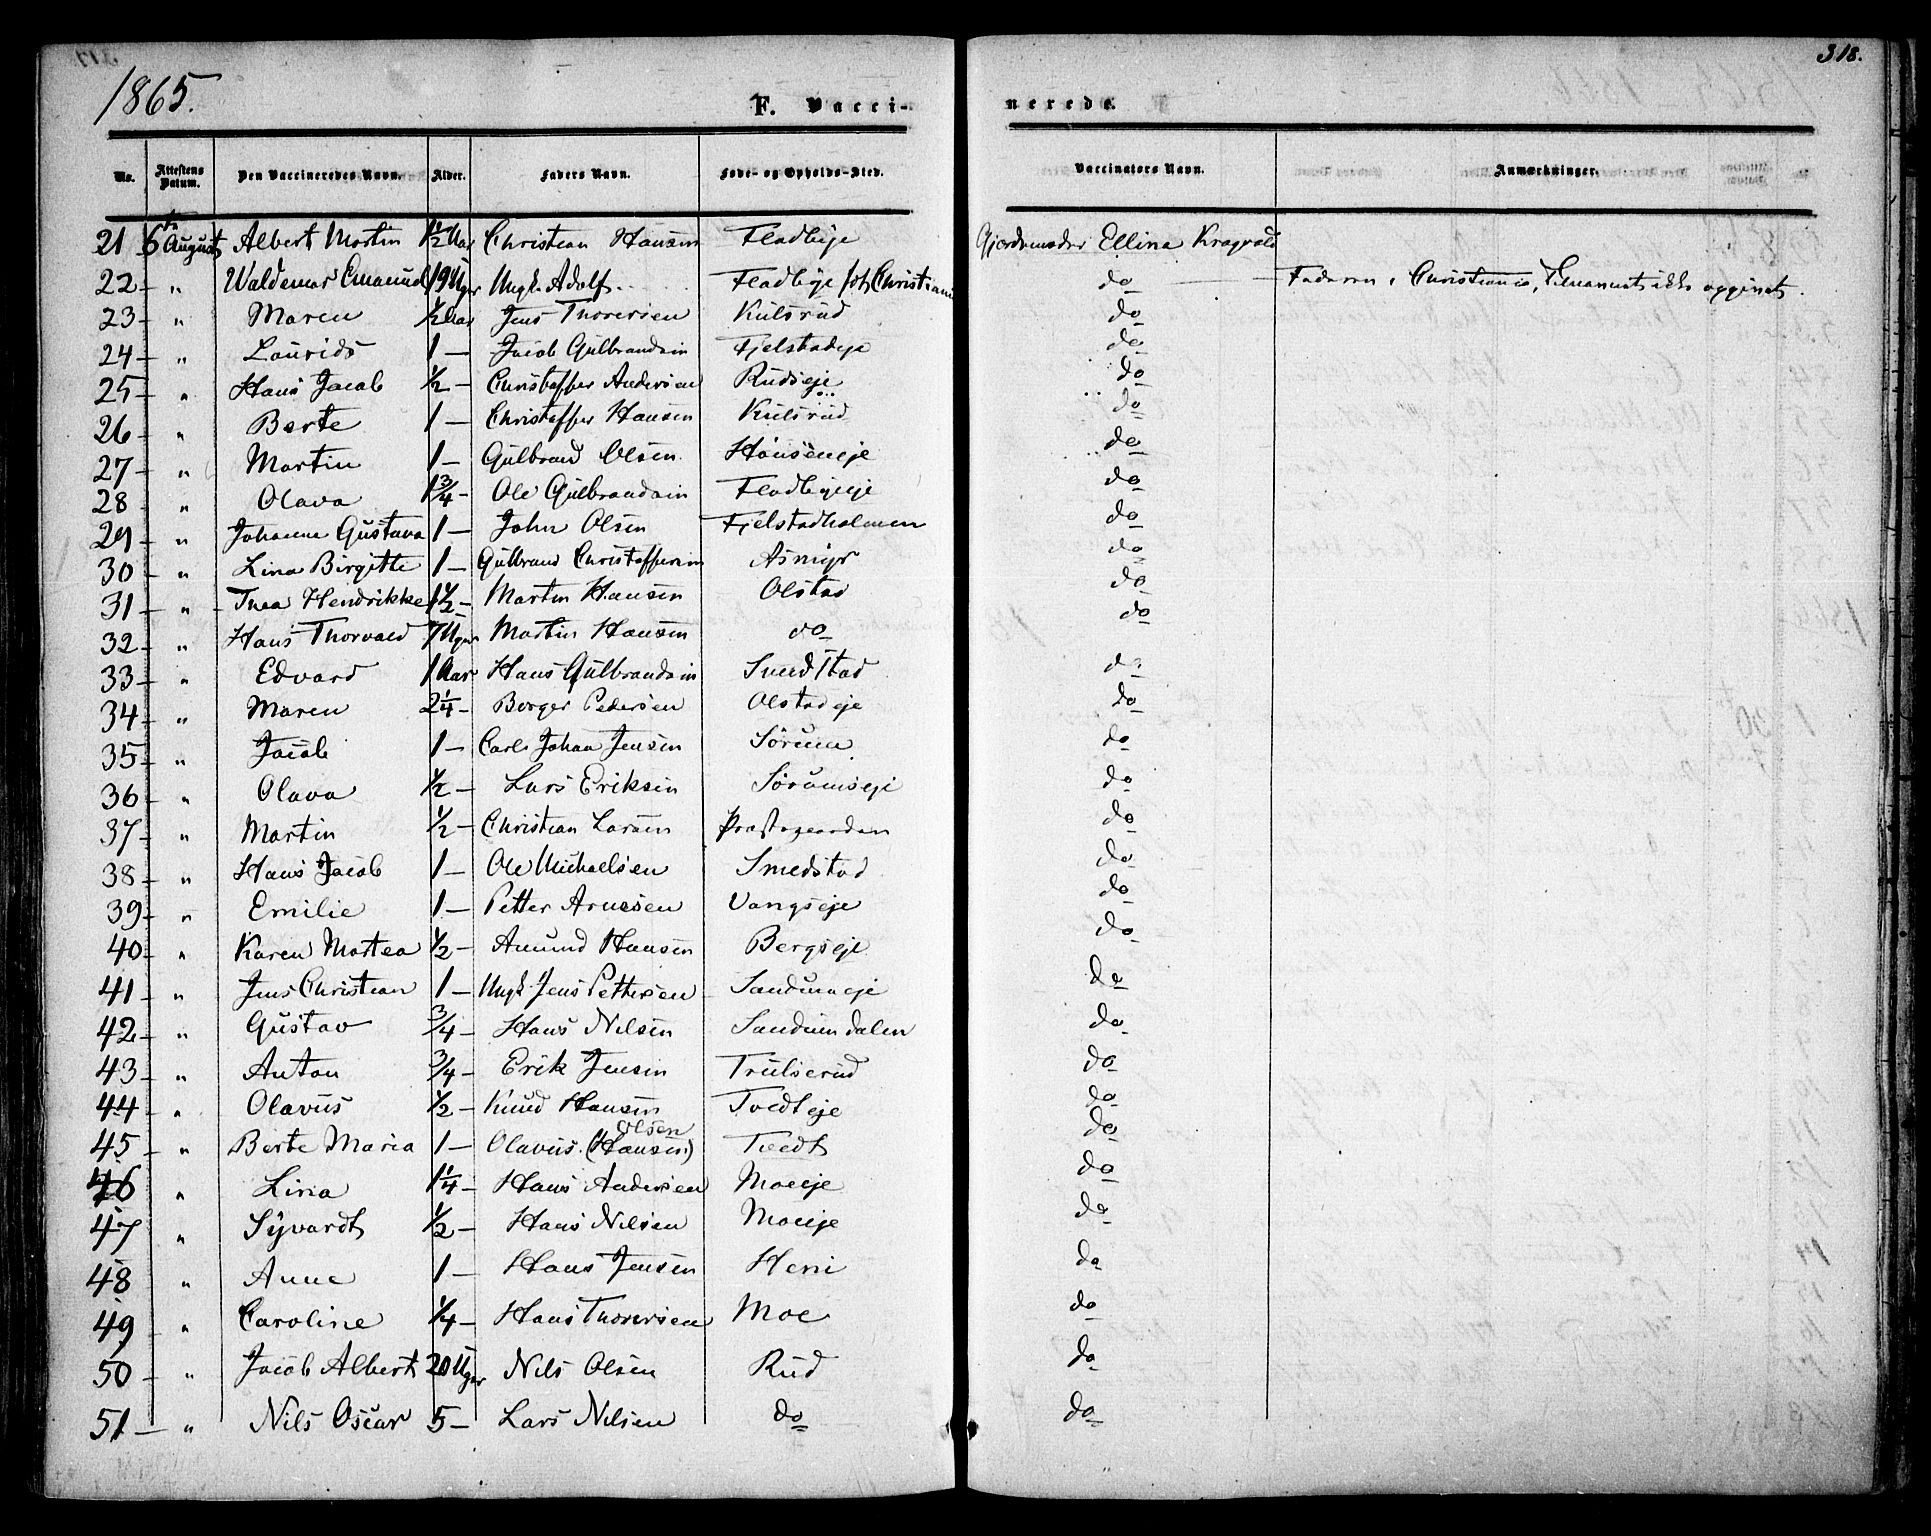 318.
1865.
F. Vaccinerede.
No. Attestens Datum. Den Vaccineredes Navn. Alder. Faders Navn. Føde- og Opholds-Sted. Vaccinators Navn. Anmærkninger.
21 6te August Albert Martin 1½ Aar Christian Hansen Fladbye Gjordemoder Ellina Kragvold
22 " Waldemar Emanuel 19 Uger Ungk. Adolf Fladbye Christiania do Faderen i Christiania, ikke opgivet.
23 " Maren ½ Aar Jens Thoresen Kulsrud do
24 " Laurids 1 — Jacob Gulbrandsen Fjelstadeje do
25 " Hans Jacob ½ — Christoffer Andersen Rudseje do
26 " Berte 1 — Christoffer Hansen Kulsrud do
27 " Martin 1 — Gulbrand Olsen Hønseneje do
28 " Olava 1¾ — Ole Gulbrandsen Fladbyeje do
29 " Johanne Gustava 1 — John Olsen Fjelstadholmen do
30 " Lina Birgitte 1 — Gulbrand Christoffersen Asmyr do
31 " Thea Hendrikke 1½ — Martin Hansen Olstad do
32 " Hans Thorvald 7 Uger Martin Hansen do do
33 " Edvard 1 Aar Hans Gulbrandsen Smedstad do
34 " Maren 2¼ — Borger Pedersen Olstadeje do
35 " Jacob 1 — Carl Johan Jensen Sørum do
36 " Olava ½ — Lars Eriksen Sørumseje do
37 " Martin ½ — Christian Larsen Præstegaarden do
38 " Hans Jacob 1 — Ole Michaelsen Smedstad do
39 " Emilie 1 — Petter Arnesen Vangseje do
40 " Karen Martea ½ — Amund Hansen Bergseje do
41 " Jens Christian 1 — Ungk. Jens Pettersen Sandumeje do
42 " Gustav ¾ — Hans Nilsen Sandumdalen do
43 " Anton ¾ — Erik Jensen Trulserud do
44 " Olavus ½ — Knud Hansen Tvedteje do
45 " Berte Maria 1 — Olavus (Hansen) Olsen Tvedt do
46 " Lina 1¼ — Hans Andersen Moeeje do
47 " Syvardt ½ — Hans Nilsen Moeeje do
48 " Anne 1 — Hans Jensen Heni do
49 " Caroline ¼ — Hans Thoresen Moe do
50 " Jacob Albert 20 Uger Nils Olsen Rud do
51 — " Nils Oscar 5 — Lars Nilsen do do